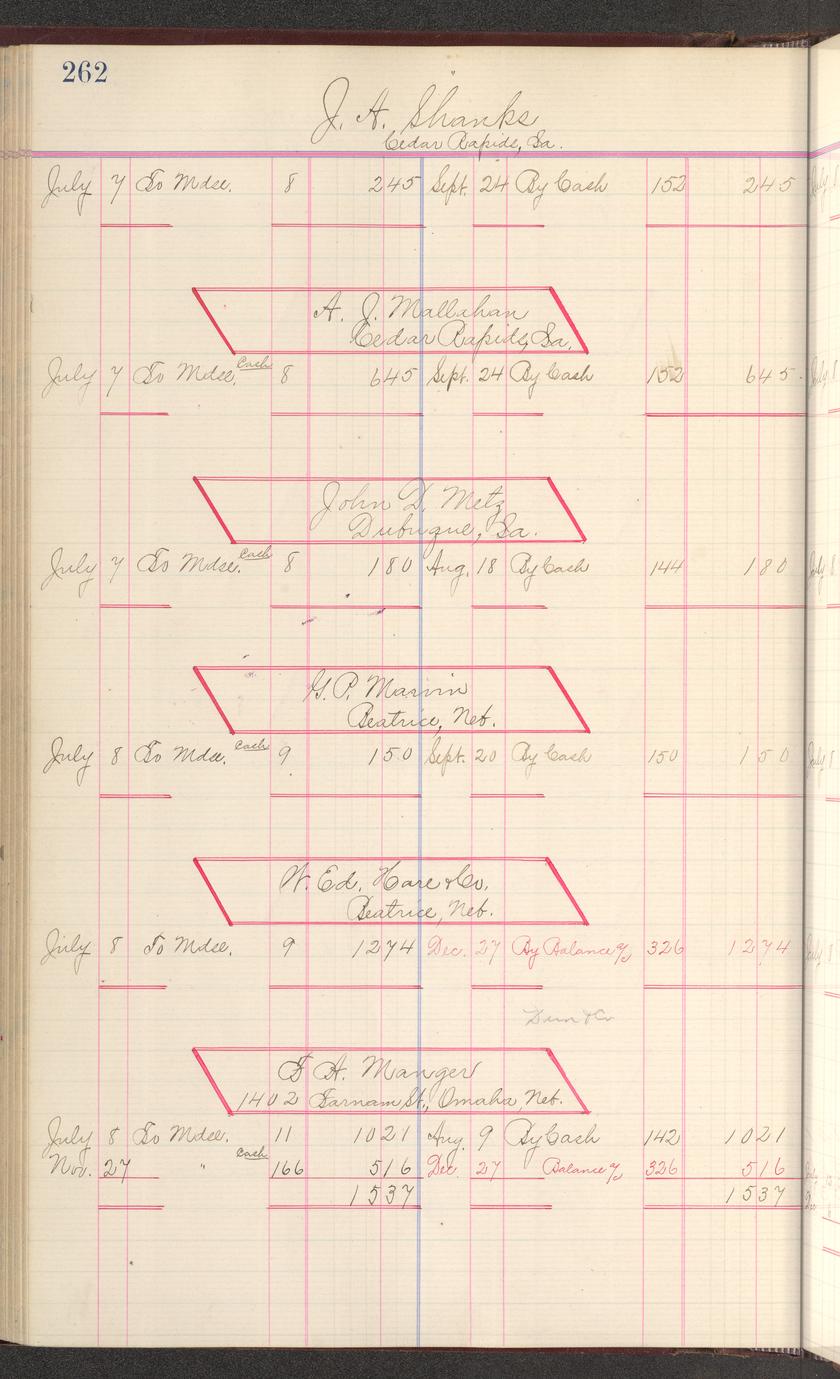 262
J. A. Shanks
Cedar Rapids, Ia.
July 7 To Mdse. 8 245 Sept. 24 By Cash 152 245
A. J. Mallahan
Cedar Rapids, Ia.
July 7 To Mdse. Cash 8 645 Sept. 24 By Cash 152 645
John D. Metz
Dubuque, Ia.
July 7 To Mdse. Cash 8 180 Aug. 18 By Cash 144 180
G. P. Marvin
Beatrice, Neb.
July 8 To Mdse. Cash 9 150 Sept. 20 By Cash 150 150
W. Ed. Hare & Co.
Beatrice, Neb.
July 8 To Mdse. 9 1274 Dec. 27 By Balance % 326 1274
Dun & Co
F. A. Manger
1402 Farnam St., Omaha, Neb.
July 8 To Mdse. 11 1021 Aug. 9 By Cash 142 1021
Nov. 27 " Cash 166 516 Dec. 27 Balance % 326 516
1537 1537